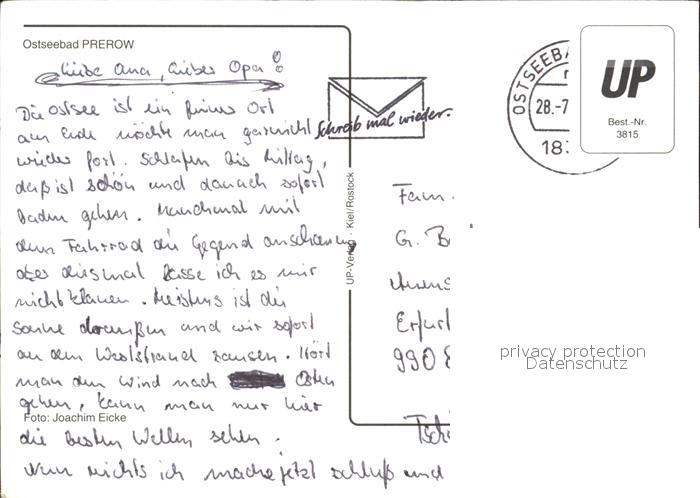 Ostseebad PREROW
Liebe Oma, lieber Opa!
Die Ostsee ist ein feiner Ort
am Ende möchte man garnicht
wieder fort. Schlafen bis Mittag,
daß ist schön und danach sofort
baden gehen. Manchmal mit
dem Fahrrad die Gegend anschauen
aber diesmal lasse ich es mir
nicht klauen. Meistens ist die
Sonne draußen und wir sofort
an den Weststrand sausen. Hört
man den Wind nach Osten
gehen, kann man nur hier
Foto: Joachim Eicke
die besten Wellen sehen.
Nun nichts ich mache jetzt schluß und
Schreib mal wieder.
UP-Verlag · Kiel/Rostock
OSTSEEBA
28.-7
18
UP
Best.-Nr.
3815
Fam.
G. B
Erfurt
990
Tsch
privacy protection
Datenschutz